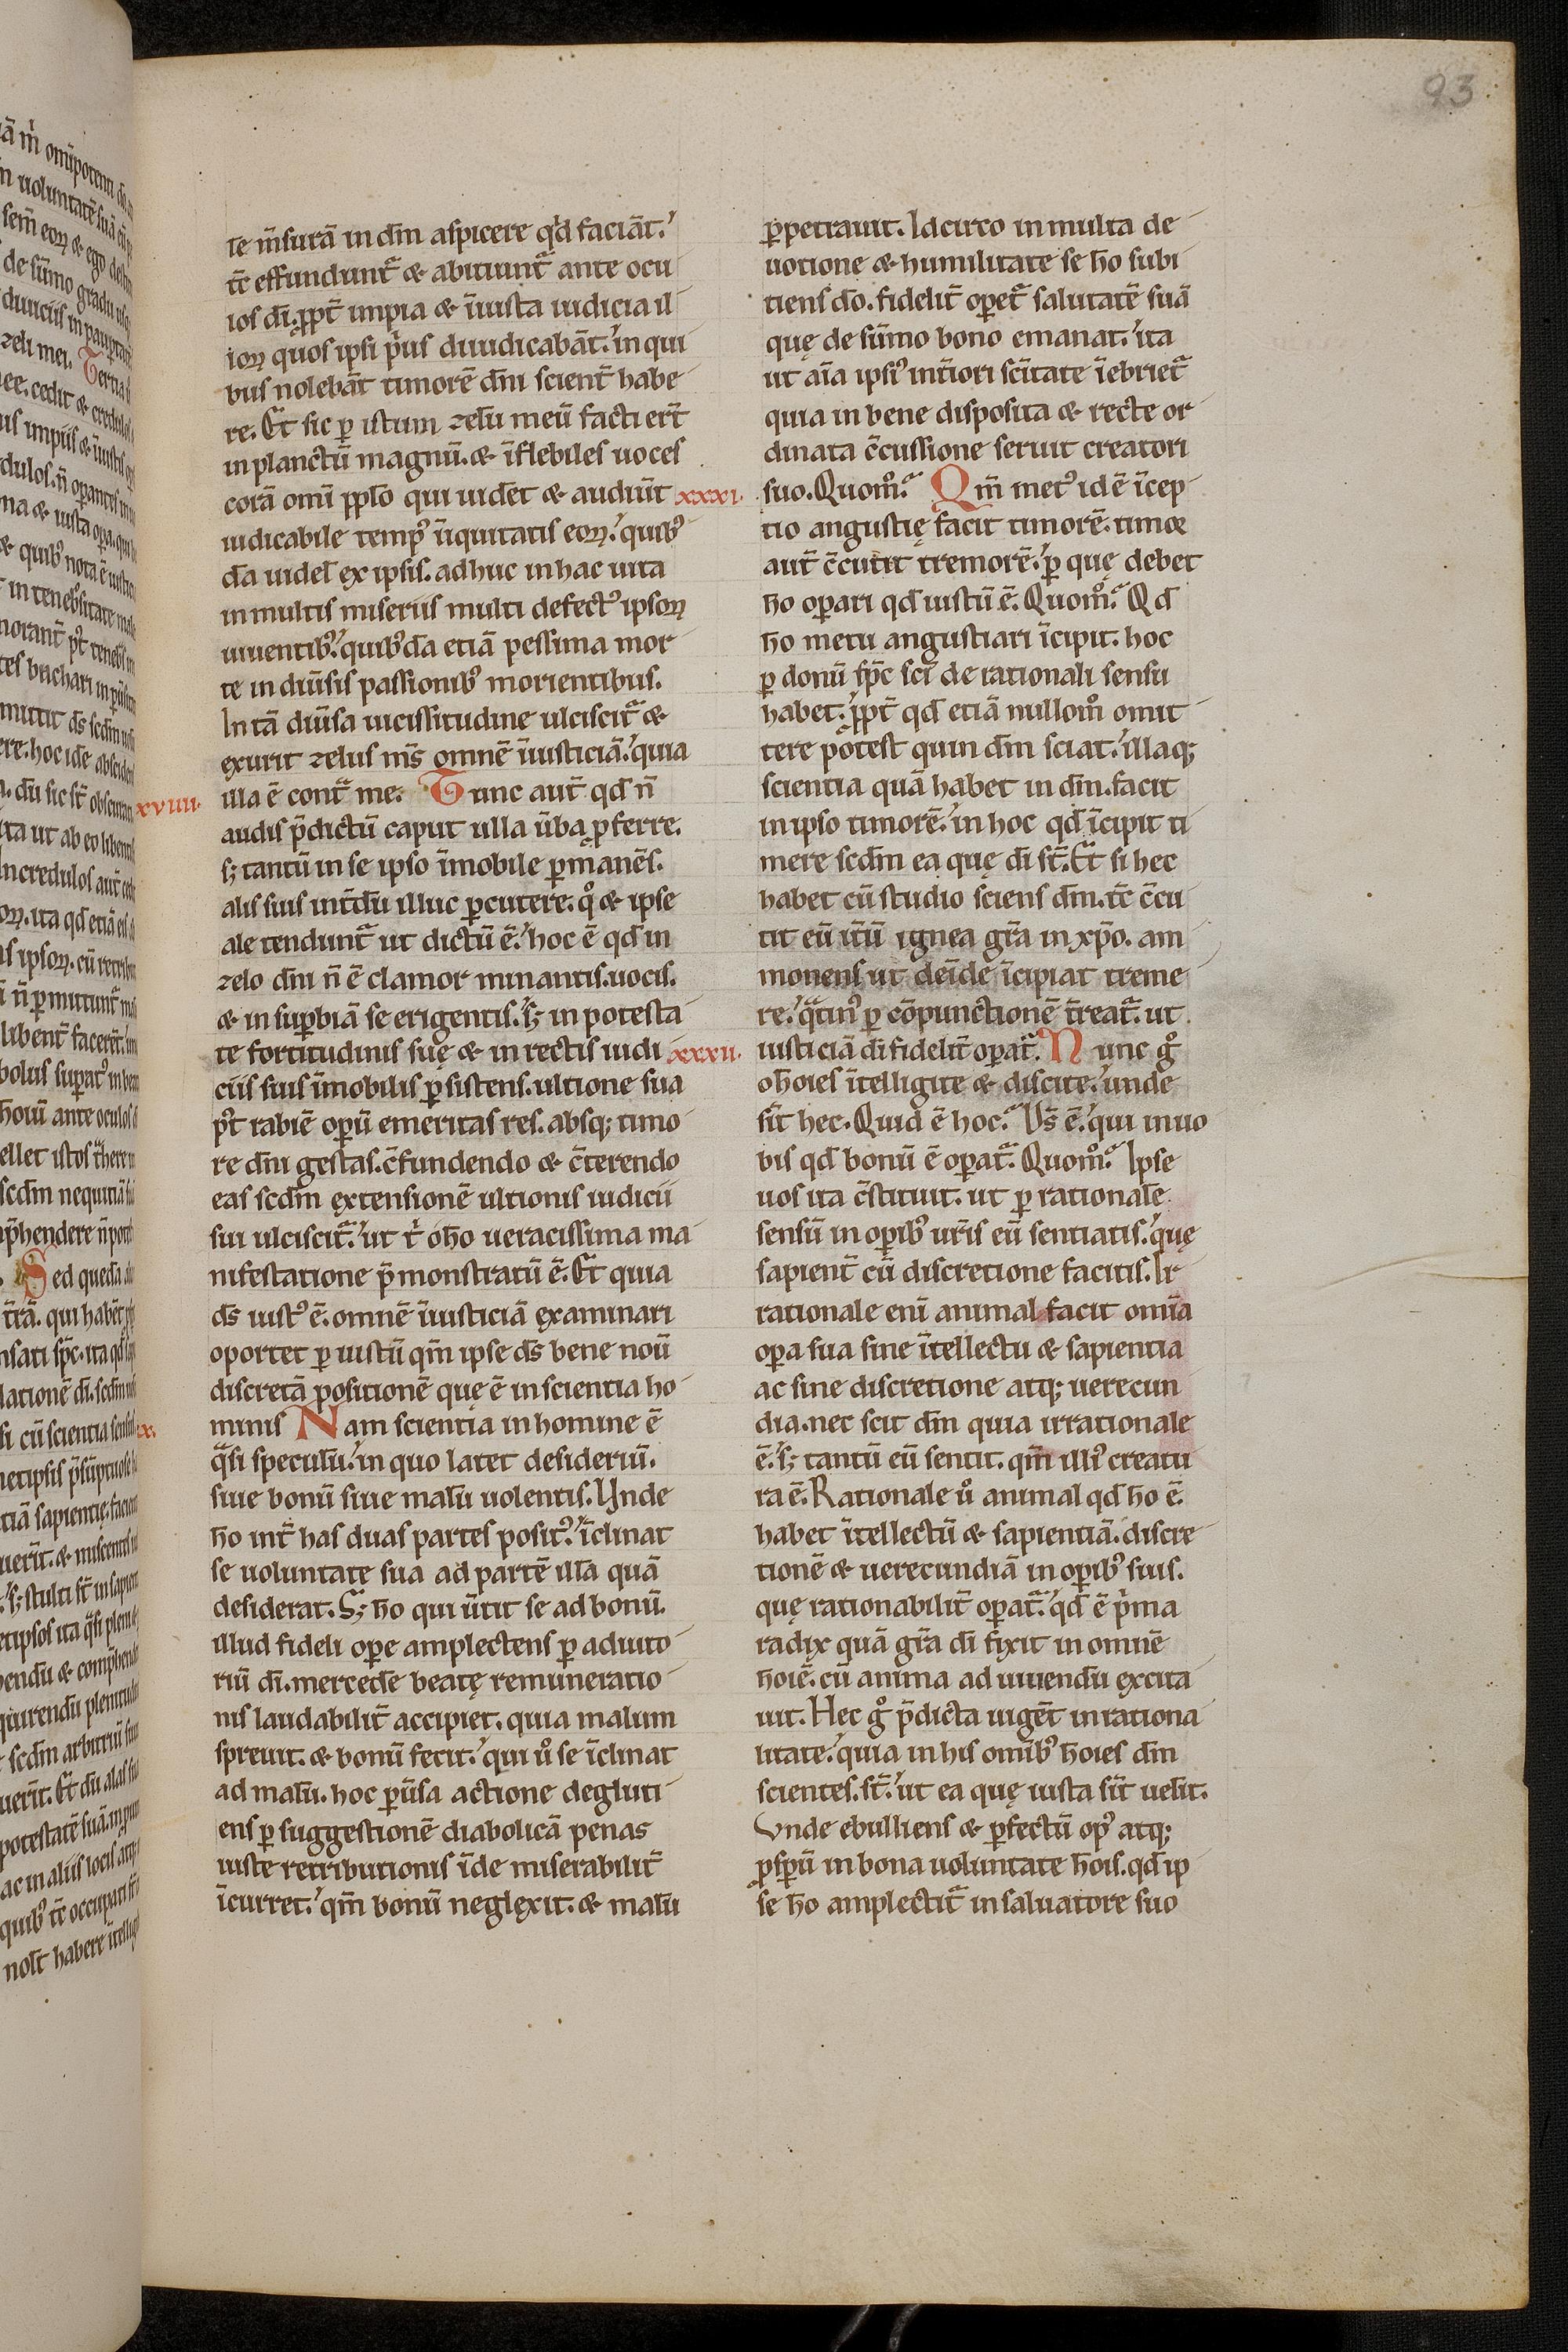 93
te m̄surā in dm̄ aspicere qd̄ faciāt.
tc̄ effundunt᷑ & abiciunt᷑ ante ocu
los dī. ꝓpt̄ impia & īiusta iudicia il
loꝝ quos ipsi p̄us diiudicabāt. in qui
bus nolebāt timorē dn̄i scient̄ habe
re. Et sic ꝑ istum zelū meū facti ert̄
in planctū magnū. & īflebiles uoces
corā omī pplo qui uidet & audiūt
iudicabile temp᷒ īiquitatis eoꝝ. quib᷒
dā uidel̄ ex ipsis. adhuc in hac uita
in multis miseriis multi defect᷒ ipsoꝝ
uiuentib᷒. quib᷒dā etiā pessima mor
te in diūsis passionib᷒ morientibus.
In tā diūsa uicissitudine ulciscit᷑ &
exurit zelus m̄s omnē īiusticiā. quia
illa ē cont᷑ me. xviiii. Tunc aut̄ qd̄ n̄
audis p̄dictū caput ulla ūba ꝓferre.
sꝫ tantū in se ipso īmobile ꝑmanēs.
alis suis int̄dū illuc ꝑcutere. qͦ & ipse
ale tendunt᷑ ut dictū ē. hoc ē qd̄ in
zelo dn̄i n̄ ē clamor minantis uocis.
& in suꝑbiā se erigentis. sꝫ in potesta
te fortitudinis suę & in rectis iudi
ciis suis īmobilis ꝑsistens. ultione sua
p̄t rabiē opū emeritas res. absqꝫ timo
re dn̄i gestas. c̄fundendo & c̄terendo
eas scdm̄ extensionē ultionis iudicii
sui ulciscit᷑. ut t̄ o ho ueracissima ma
nifestatione p̄monstratū ē. Et quia
ds̄ iust᷒ ē. omnē īiusticiā examinari
oportet ꝑ iustū qm̄ ipse ds̄ bene nouit
discretā positionē que ē in scientia ho
minis xx. Nam scientia in homine ē
q᷑si speculū. in quo latet desideriū.
siue bonū siue malū uolentis. Unde
ho int̄ has duas partes posit᷒. īclinat
se uoluntate sua ad partē illā quā
desiderat. Sꝫ ho qui ūtit se ad bonū.
illud fideli ope amplectens ꝑ adiuto
riū dī. mercedē beatę remuneratio
nis laudabilit̄ accipiet. quia malum
spreuit. & bonū fecit. qui ů se īclinat
ad malū. hoc ꝑūsa actione degluti
ens ꝑ suggestionē diabolicā penas
iuste retributionis īde miserabilit̄
īcurret. qm̄ bonū neglexit. & malū
ꝑpetrauit. Idcirco in multa de
uotione & humilitate se ho subi
tiens dō. fidelit̄ opet᷑ salutatē suā
quę de sūmo bono emanat. ita
ut aīa ipsi᷒ int̄iori scītate īebriet᷑
quia in bene disposita & recte or
dinata c̄cussione seruit creatori
xxxi. suo. Quomͦ. Qm̄ met᷒ id ē īcep
tio angustię facit timorē. timor
aut̄ c̄cutit tremorē. ꝑ quę debet
ho operari qd̄ iustū ē. Quomͦ. Qd̄
ho metu angustiari īcipit. hoc
ꝑ donū spc̄ scī de rationali sensu
habet. ꝓpt̄ qd̄ etiā nullomͦ omit
tere potest quin dm̄ sciat. illaqꝫ
scientia quā habet in dm̄. facit
in ipso timorē. in hoc qd̄ īcipit ti
mere scdm̄ ea quę dī st̄. Et si hec
habet cū studio sciens dm̄. tc̄ c̄cu
tit eū itū ignea gr̄a in xp̄o. am
monens ut deīde īcipiat treme
re. q᷑tin᷒ ꝑ cōpunctionē t̄reat᷑. ut
xxxii. iusticiā dī fidelit̄ opat᷑. Nunc gͦ
o hoīes ītelligite & discite. unde
sīt hec. Quid ē hoc. Ds̄ ē. qui in uo
bis qd̄ bonū ē opat᷑. Quomͦ. Ipse
uos ita c̄stituit. ut ꝑ rationalē
sensū in opib᷒ ur̄is eū sentiatis. quę
sapient̄ cū discretione facitis. Ir
rationale enī animal facit omīa
opa sua sine ītellectu & sapientia
ac sine discretione atqꝫ uerecun
dia. nec scit dm̄ quia irrationale
ē. sꝫ tantū eū sentit. qm̄ illi᷒ creatu
ra ē. Rationale ů animal qd̄ ho ē.
habet ītellectū & sapientiā. discre
tionē & uerecundiā in opib᷒ suis.
quę rationabilit̄ opat᷑. qd̄ ē p̄ma
radix quā gr̄a dī fixit in omnē
hoīē. cū anima ad uiuendū excita
uit. Hec gͦ p̄dicta uigēt in rationa
litate. quia in his omīb᷒ hoīes dm̄
scientes. st̄. ut ea quę iusta sīt uelīt.
Vnde ebulliens & ꝑfectū op᷒ atqꝫ
ꝓspū in bona uoluntate hoīs. qd̄ ip
se ho amplectit᷑ in saluatore suo